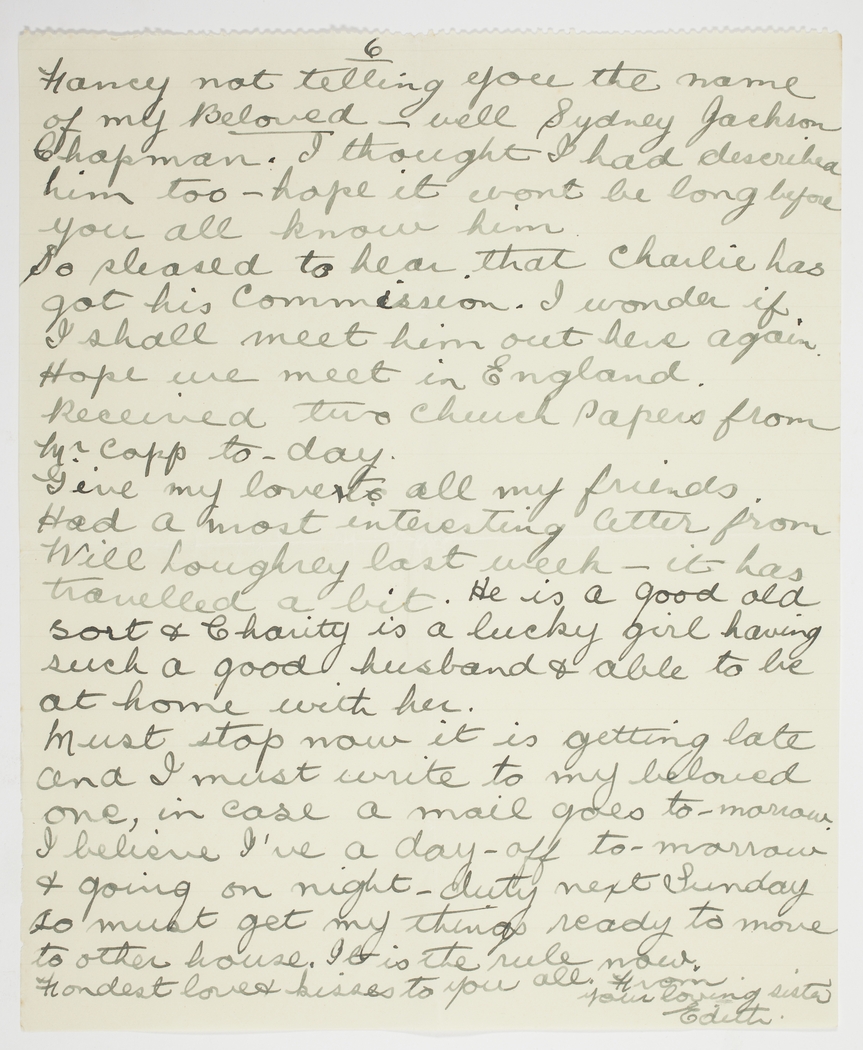 6
Fancy not telling you the name
of my Beloved – well Sydney Jackson
Chapman. I thought I had described
him too – hope it wont be long before
you all know him.
So pleased to hear that Charlie has
got his Commission. I wonder if
I shall meet him out here again.
Hope we meet in England.
Received two Church Papers from
Mr Copp to-day.
Give my love to all my friends.
Had a most interesting letter from
Will Loughrey last week – it has
travelled a bit. He is a good old
sort & Charity is a lucky girl having
such a good husband & able to be
at home with her.
Must stop now it is getting late
and I must write to my beloved
one, in case a mail goes to-morrow.
I believe I've a day-off to-morrow
& going on night-duty next Sunday
so must get my things ready to move
to other house. It is the rule now.
Fondest love & kisses to you all. From
your loving sister
Edith.